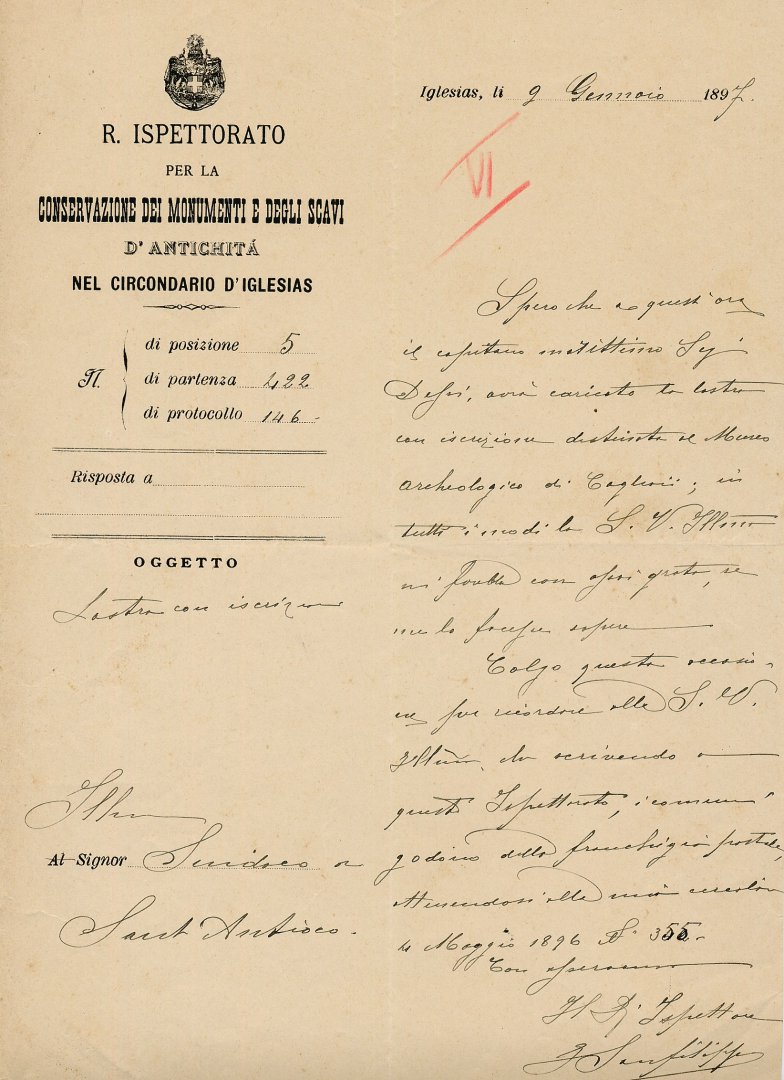 R. ISPETTORATO
PER LA
CONSERVAZIONE DEI MONUMENTI E DEGLI SCAVI
D'ANTICHITÁ
NEL CIRCONDARIO D'IGLESIAS
N. di posizione 5
di partenza 422
di protocollo 146
Risposta a
OGGETTO
Lastra con iscrizione
Illmo
Al Signor Sindaco di
Sant Antioco.
Iglesias, li 9 Gennaio 1897.
VI
Spero che a quest'ora
il capitano marittimo Sig.
avrà caricato la lastra
con iscrizione destinata al Museo
archeologico di Cagliari; in
tutti i modi la S. V. Illma
mi farebbe cosa assai grata, se
me lo facesse sapere
Colgo questa occasio-
ne per ricordare alla S. V.
Illma. che scrivendo a
questo Ispettorato, i comuni
godono della franchigia postale,
attenendosi alla mia circolare
4 Maggio 1896 N° 355.
Con osservanza
Il R. Ispettore
Sanfilippo